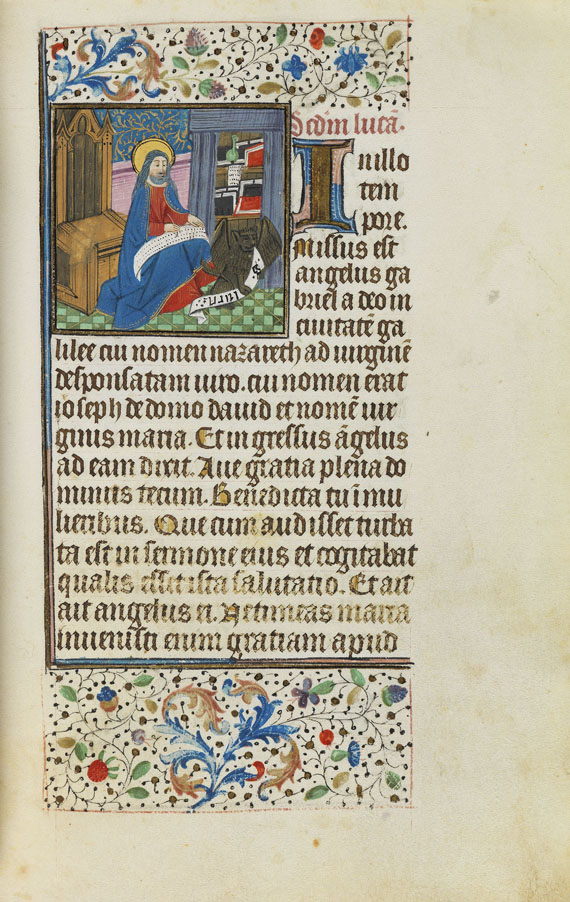 Scdm lucā.
In illo
tem
pore.
Missus est
angelus ga
briel a deo in
ciuitatē ga
lilee cui nomen nazareth ad uirginē
desponsatam uiro. cui nomen erat
ioseph de domo dauid et nomē uir
ginis maria. Et in gressus āgelus
ad eam dixit. Aue gratia plena do
minus tecum. Benedicta tu in mu
lieribus. Que cum audisset turba
ta est in sermone eius et cogitabat
qualis esset ista salutatio. Et ait
ait angelus ei. Ne timeas maria
inuenisti enim gratiam apud